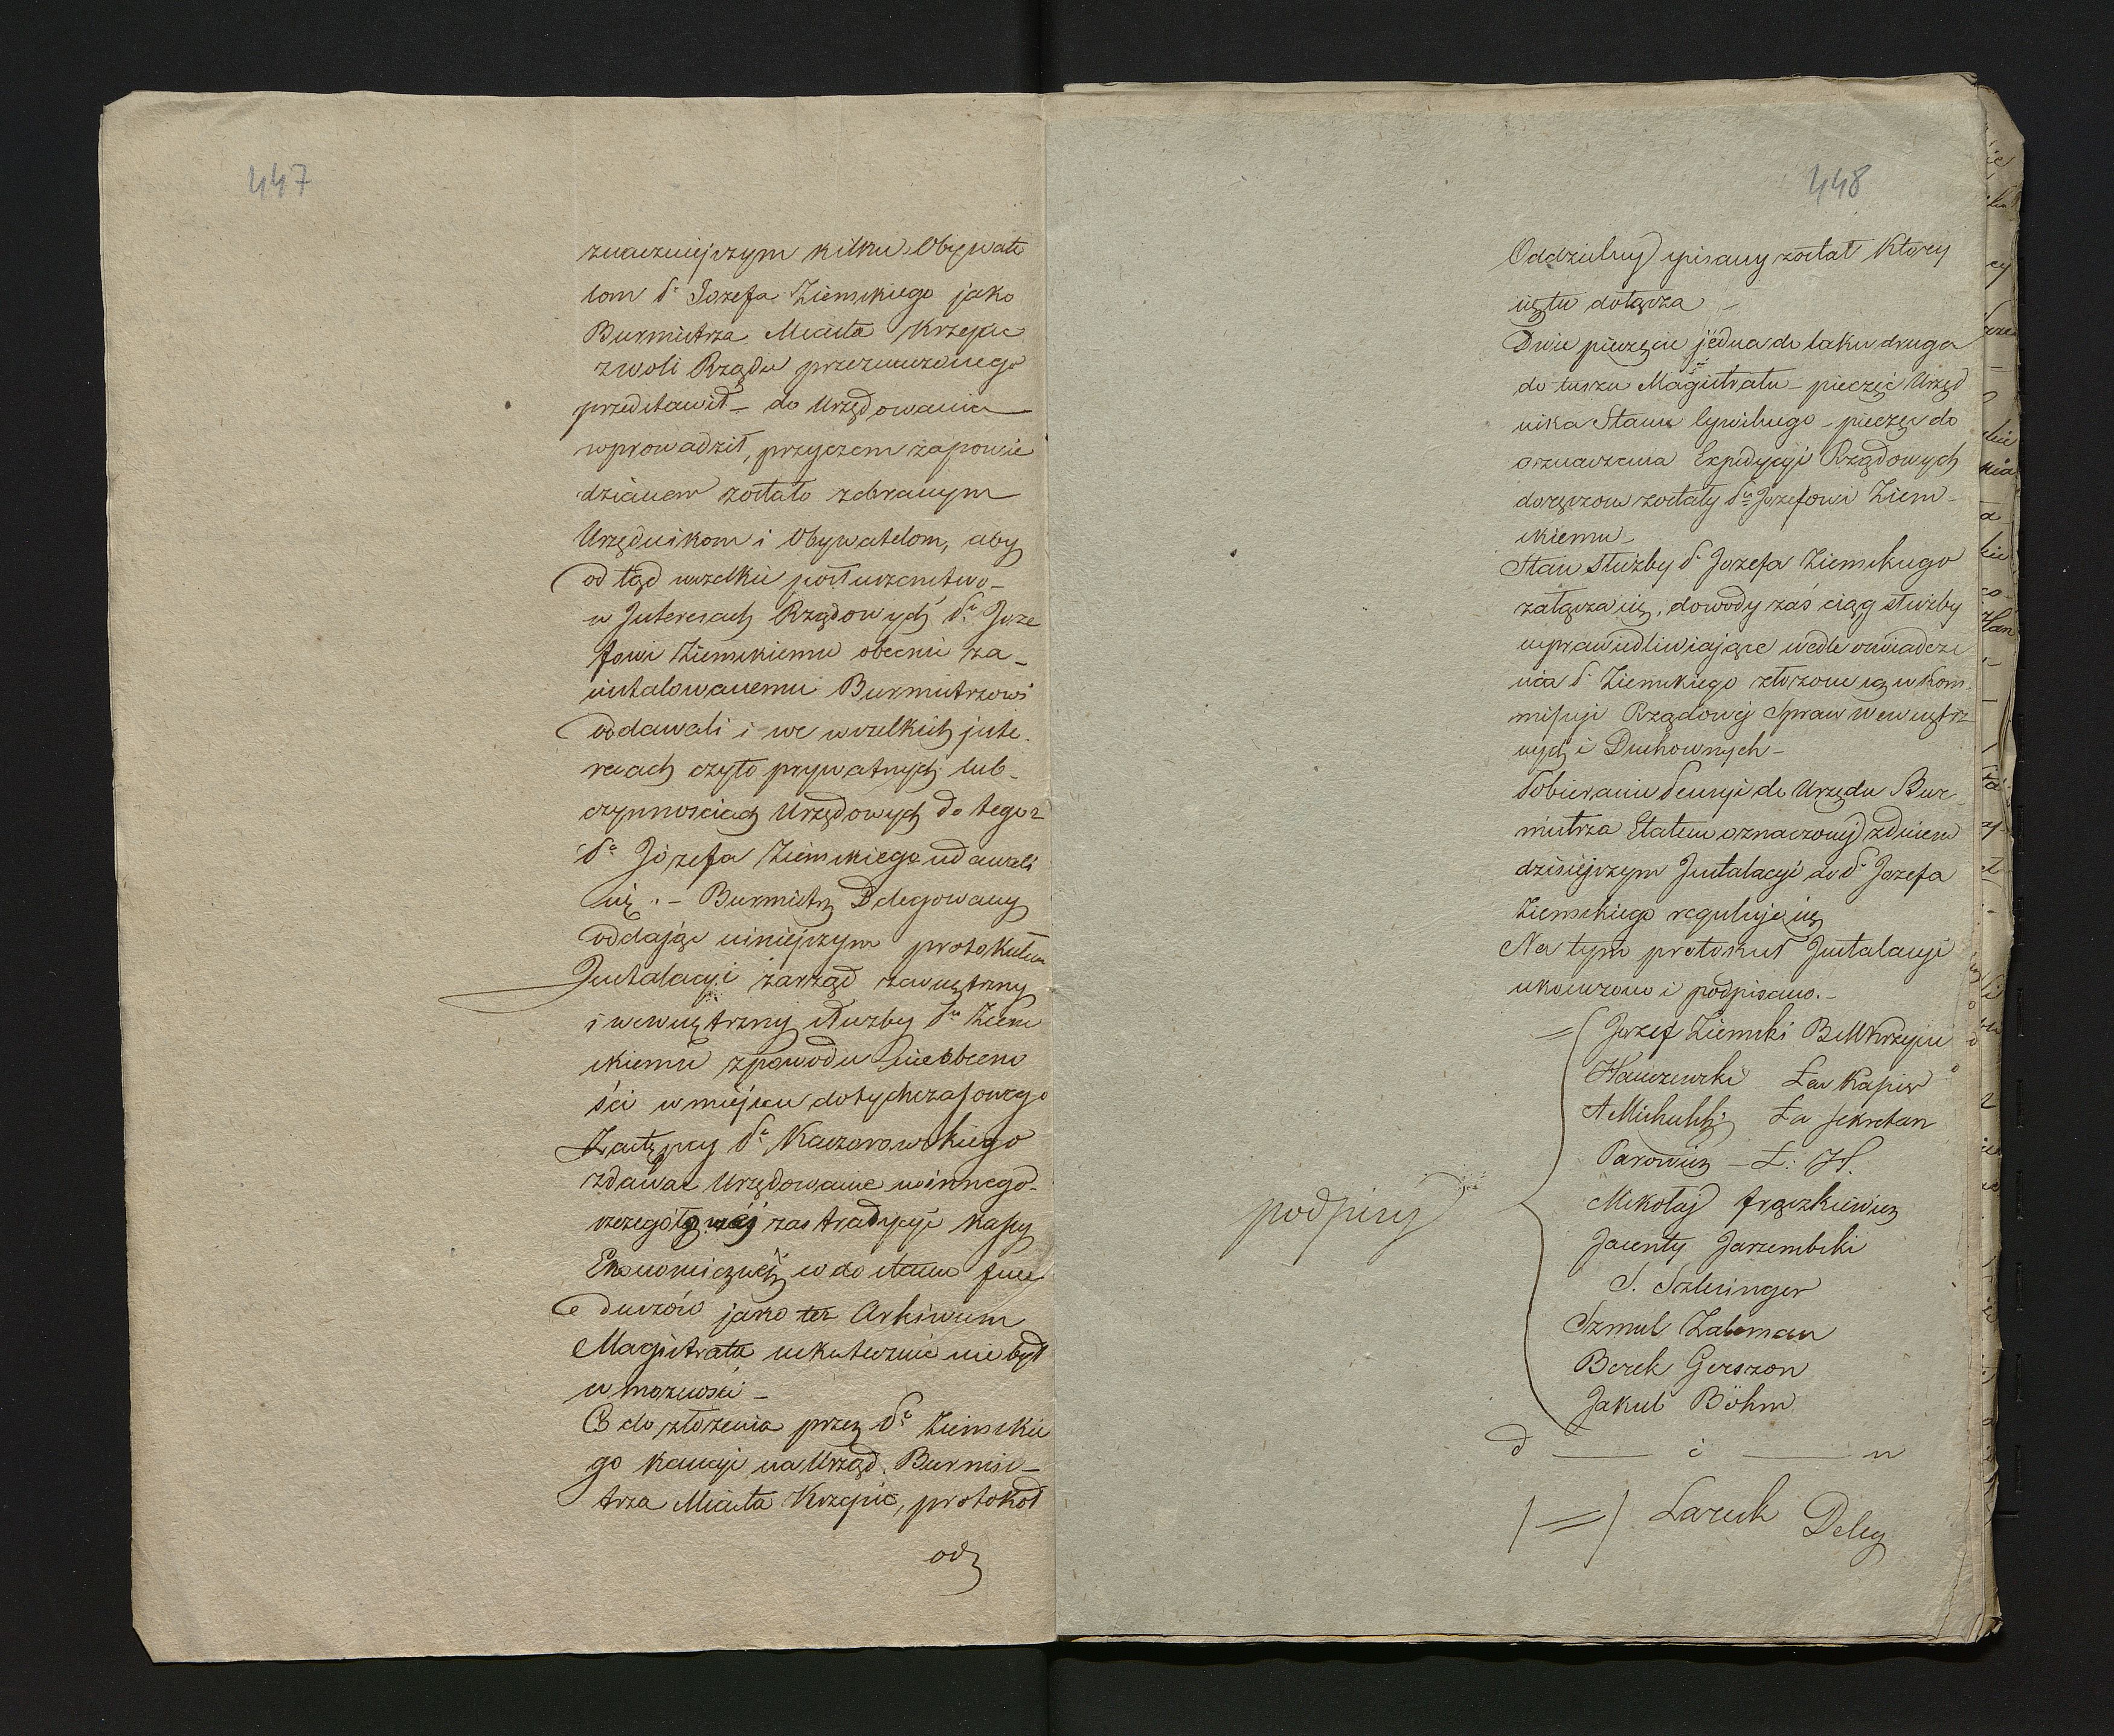 447
znaczniejszym kilku Obywate
lom P. Jozefa Ziemskiego jako
Burmistrza Miasta Krzepic
z woli Rządu przeznaczonego
przedstawił – do Urzędowania
wprowadził, przyczem zapowie
dzianem zostało zebranym
Urzędnikom i Obywatelom, aby
od tąd wszelkie posłuszenstwo –
w Interesach Rządowych Pu Joze
fowi Ziemskiemu obecnie za –
instalowanemu Burmistrzowi
oddawali i we wszelkich inte
resach czyto prywatnych lub –
czynnosciach Urzędowych do tegoż
Pa Józefa Ziemskiego udawali
się. – Burmistrz Delegowany
oddając niniejszym protokułem
Instalacyi zarząd zewnętrzny
i wewnętrzny służby Pu Ziem
skiemu z powodu nieobecno
ści w miejscu dotychczasowego
Zastępcy Pa Kaczorowskiego
zdawać Urzędowanie winnego –
szczegółowej zas tradycyi kassy
Ekonomicznej co do stanu fun
duszów jako też Arkiwum
Magistratu uskutecznić nie był
w możności –
Co do złożenia przez Pa Ziemskie
go kaucyi na Urząd Burmis –
trza Miasta Krzepic, protokoł
od
448
Oddzielny spisany został który
się tu dołącza –
Dwie pieczęcie jedna do laku druga
do tuszu Magistratu – pieczęć Urzęd
nika Stanu Cywilnego – pieczęć do
oznaczenia Expedycyi Rządowych
doręczone zostały Pu Jozefowi Ziem –
skiemu –
Stan służby P. Jozefa Ziemskiego
załącza się, dowody zaś ciąg służby
usprawiedliwiające wedle oswiadcze
nia P. Ziemskiego złożone są w Kom
missyi Rządowej Spraw Wewnętrz
nych i Duchownych –
Pobieranie Pensyi do Urzędu Bur
mistrza Etatem oznaczonej z dniem
dzisiejszym Instalacyi do P. Jozefa
Ziemskiego reguluje się
Na tym protokuł Instalacyi
ukończono i podpisano. –
= Jozef Ziemski B M Krzepic
Ław Kassier
A Michalski Ła Sekretarz
Ł: H.
podpisy
Mikołaj Frączkiewicz
Jacenty Jarzembski
S. Szlesinger
Szmul Zalcman
Berek Gerszon
Jakub Böhm
d — i — n
/=/ Deleg